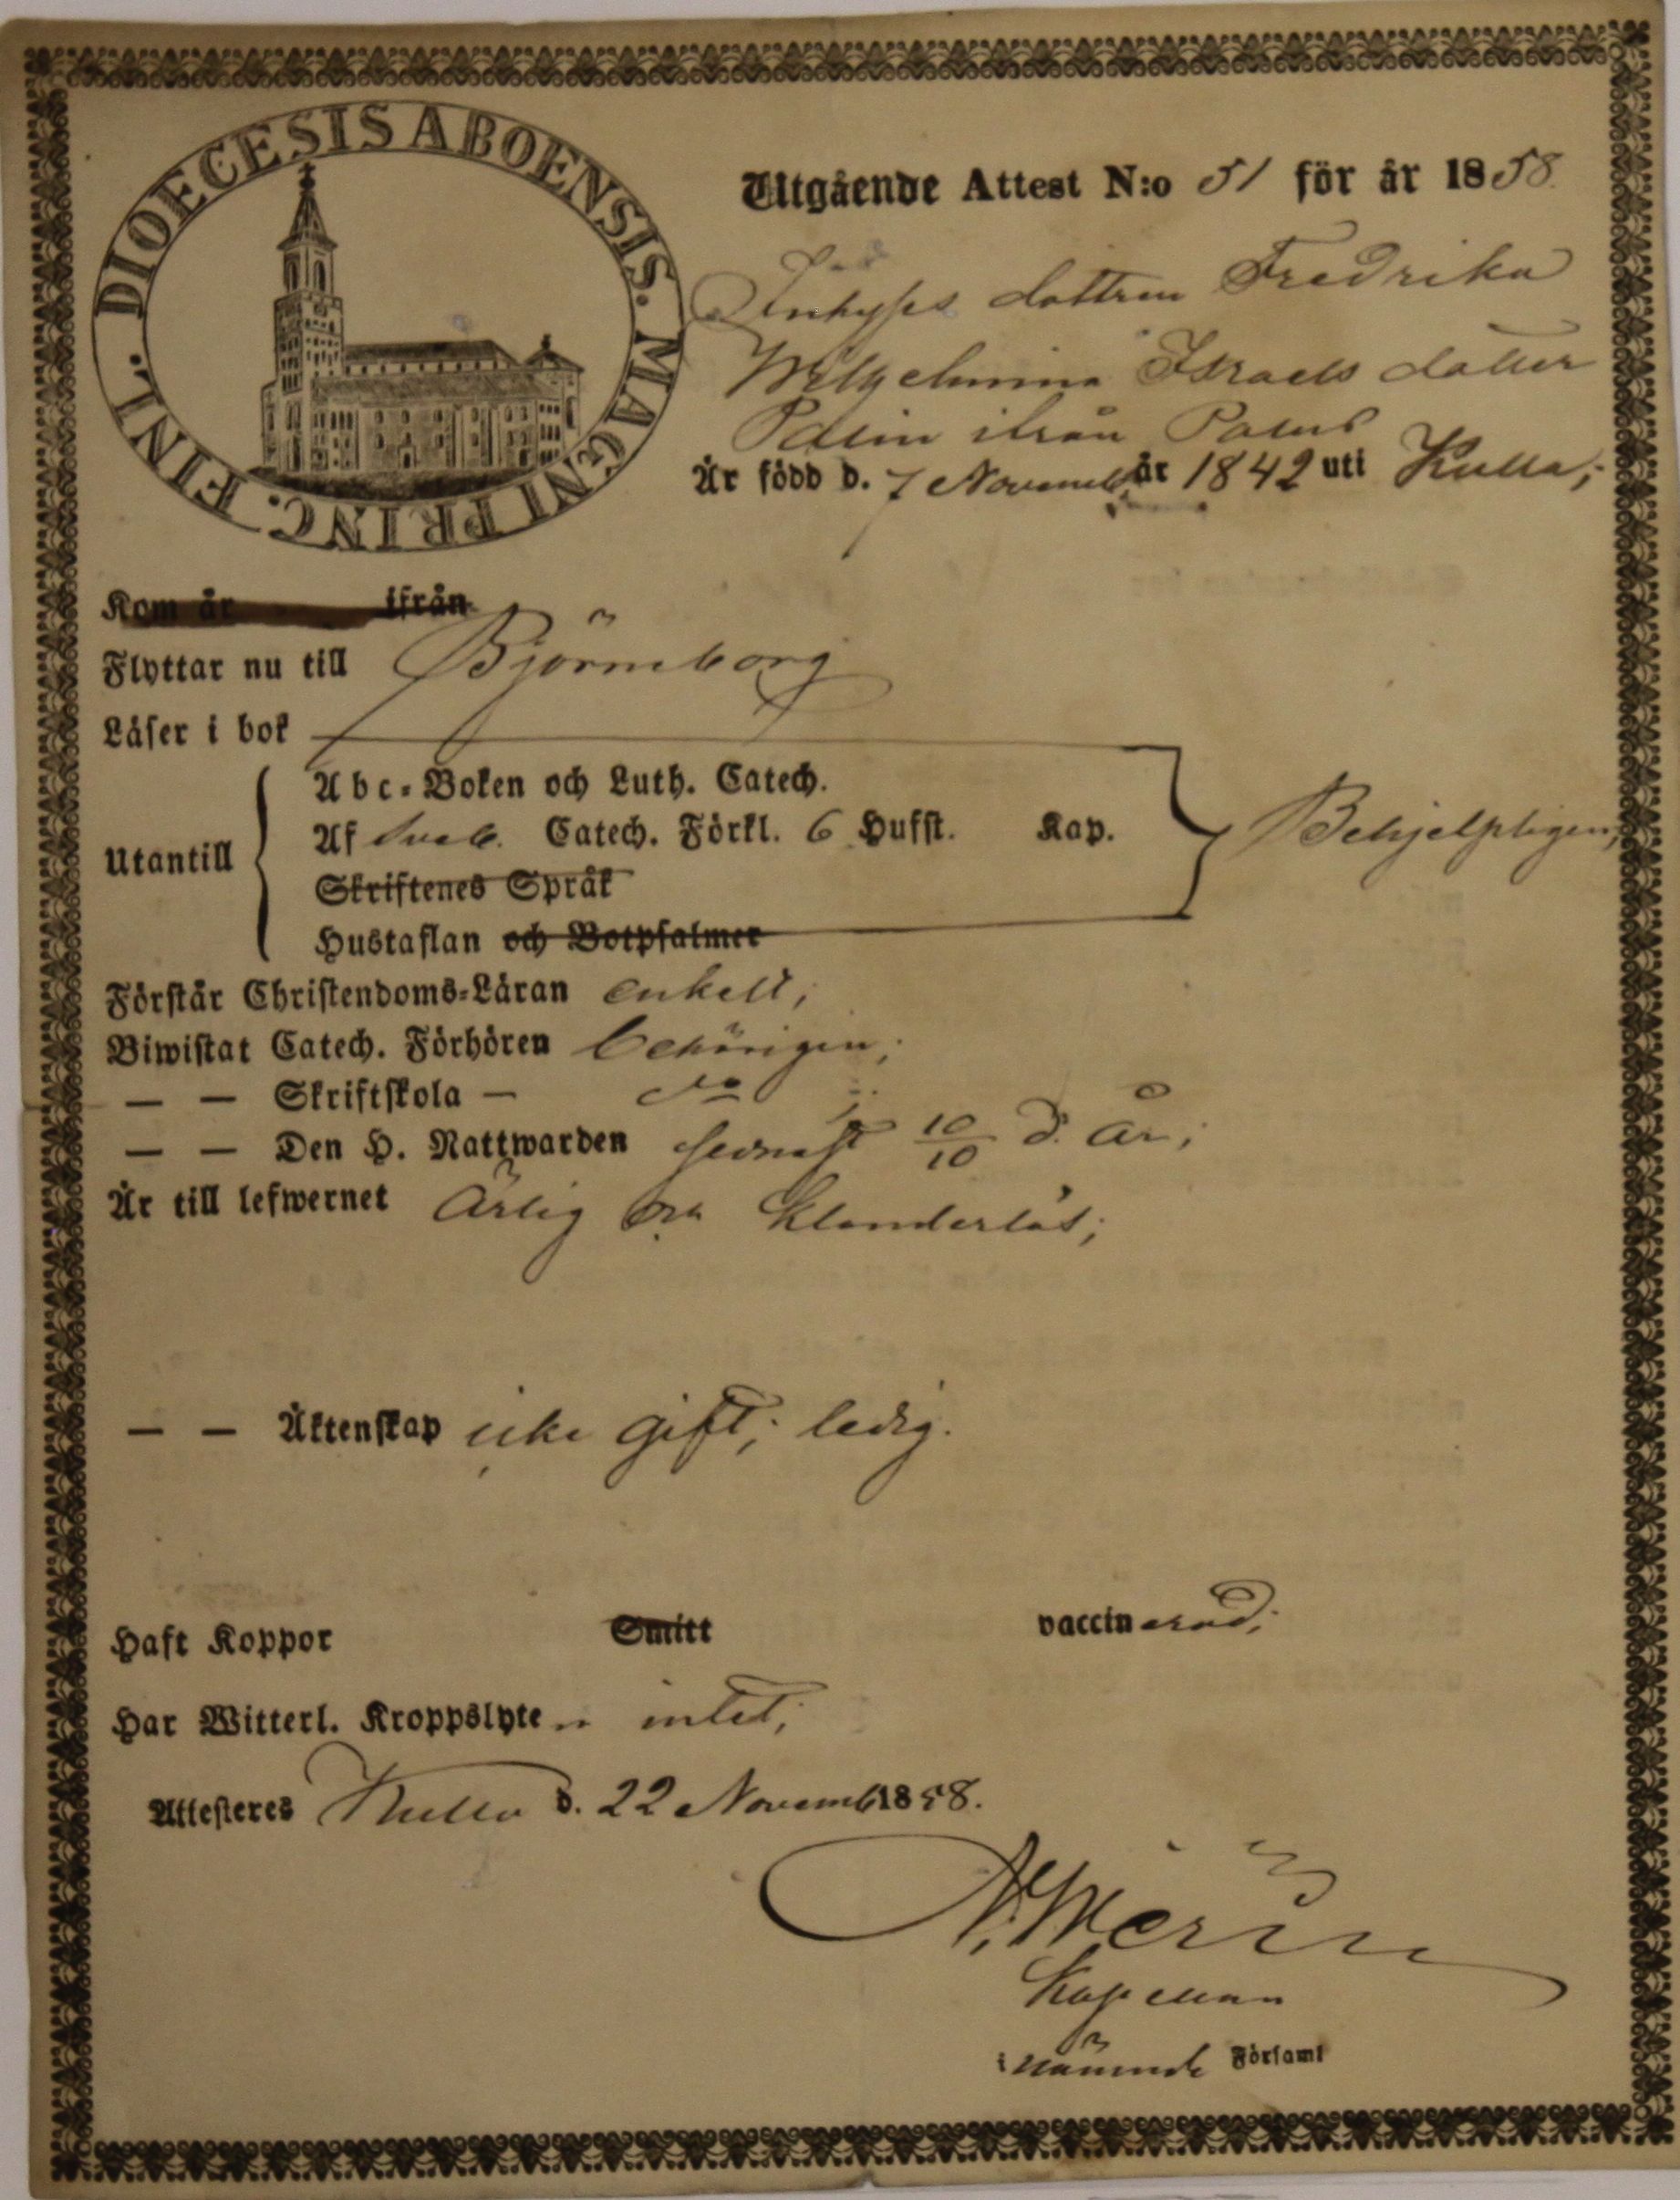 DIOECESIS ABOENSIS. MAGNI PRINC. FINL.
Utgående Attest N:o 51 för år 1858.
Inhyses dottren Fredrika
Wilhelmina Israels dotter
Palin ifrån Palus
Är född d. 7 Novemb. år 1842 uti Kulla;
Kom år ifrån
Flyttar nu till Björneborg
Läser i bok
Utantill
Abc-Boken och Luth. Catech.
Af Sveb. Catech. Förkl. 6 Hufst. Kap.
Behjelpligen;
Skriftenes Språk
Hustaflan och Botpsalmer
Förstår Christendoms-Läran enkelt;
Biwistat Catech. Förhören behörigen;
— — Skriftskola — do
— — Den H. Nattwarden senast 10/10 d. år;
Är till lefwernet Ärlig och klanderlös;
— — Äktenskap icke gift; ledig.
Haft Koppor Smitt vaccinerad;
Har Witterl. Kroppslyte n intet;
Attesteres Kulla d. 22 Novemb 1858.
Kapellan
i nämnde Församl